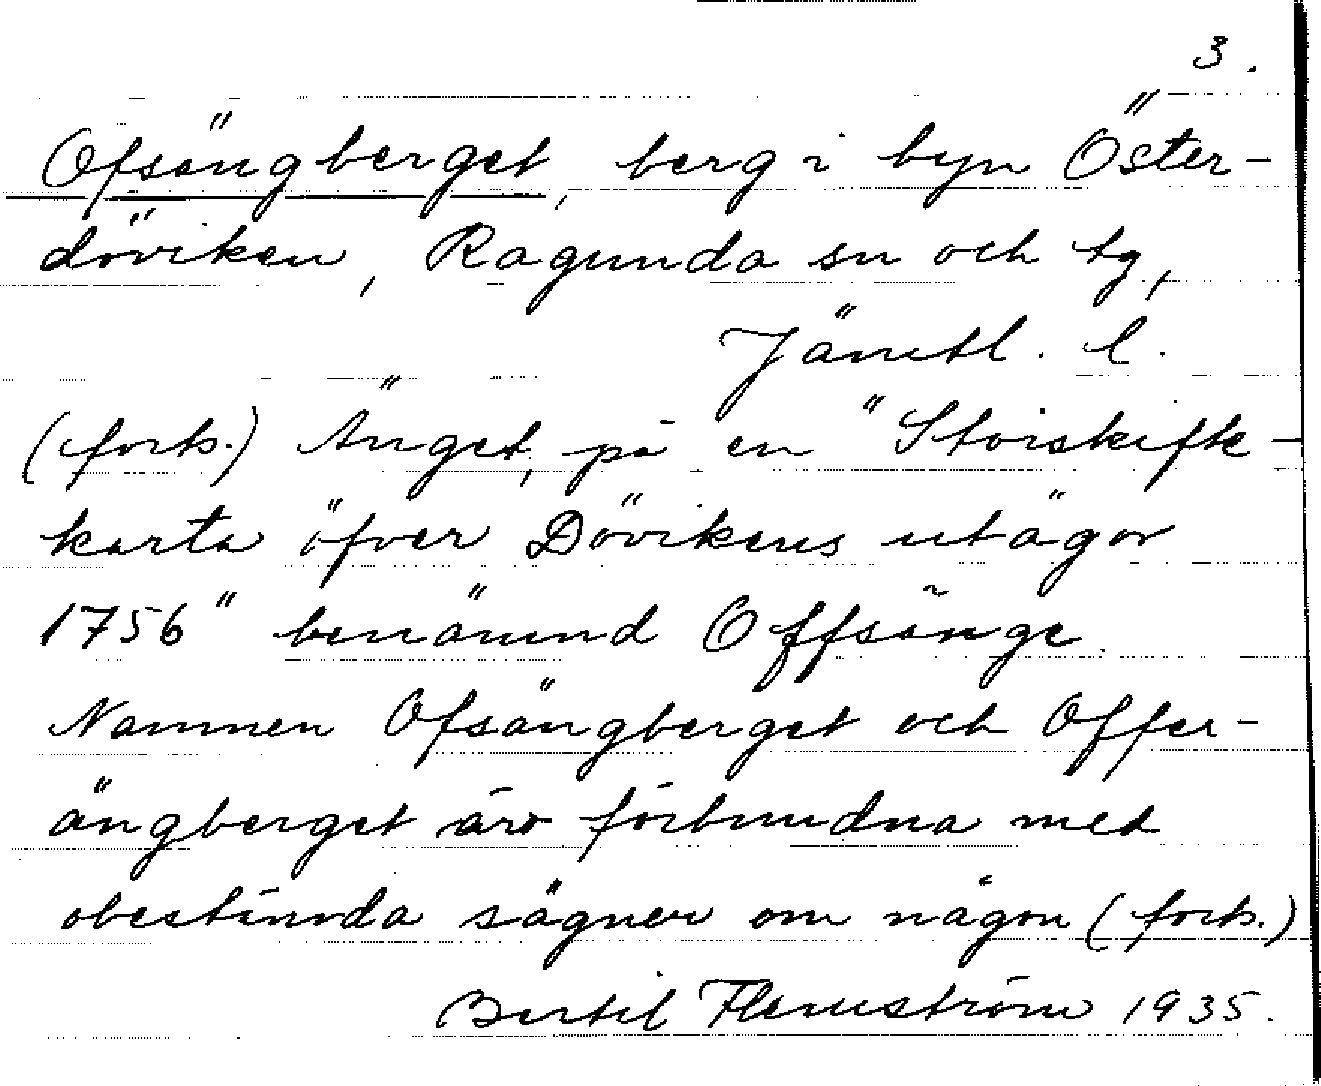 3.
Ofsängberget, berg i byn Öster-
döviken, Ragunda sn och tg,
Jämtl. l.
(forts.) Änget, på en "Storskifte-
karta öfver Dövikens utägor
1756" benämnd Offsänge.
Namnen Ofsängberget och Offer-
ängberget äro förbundna med
obestämda sägner om någon (forts.)
Bertil Flemström 1935.